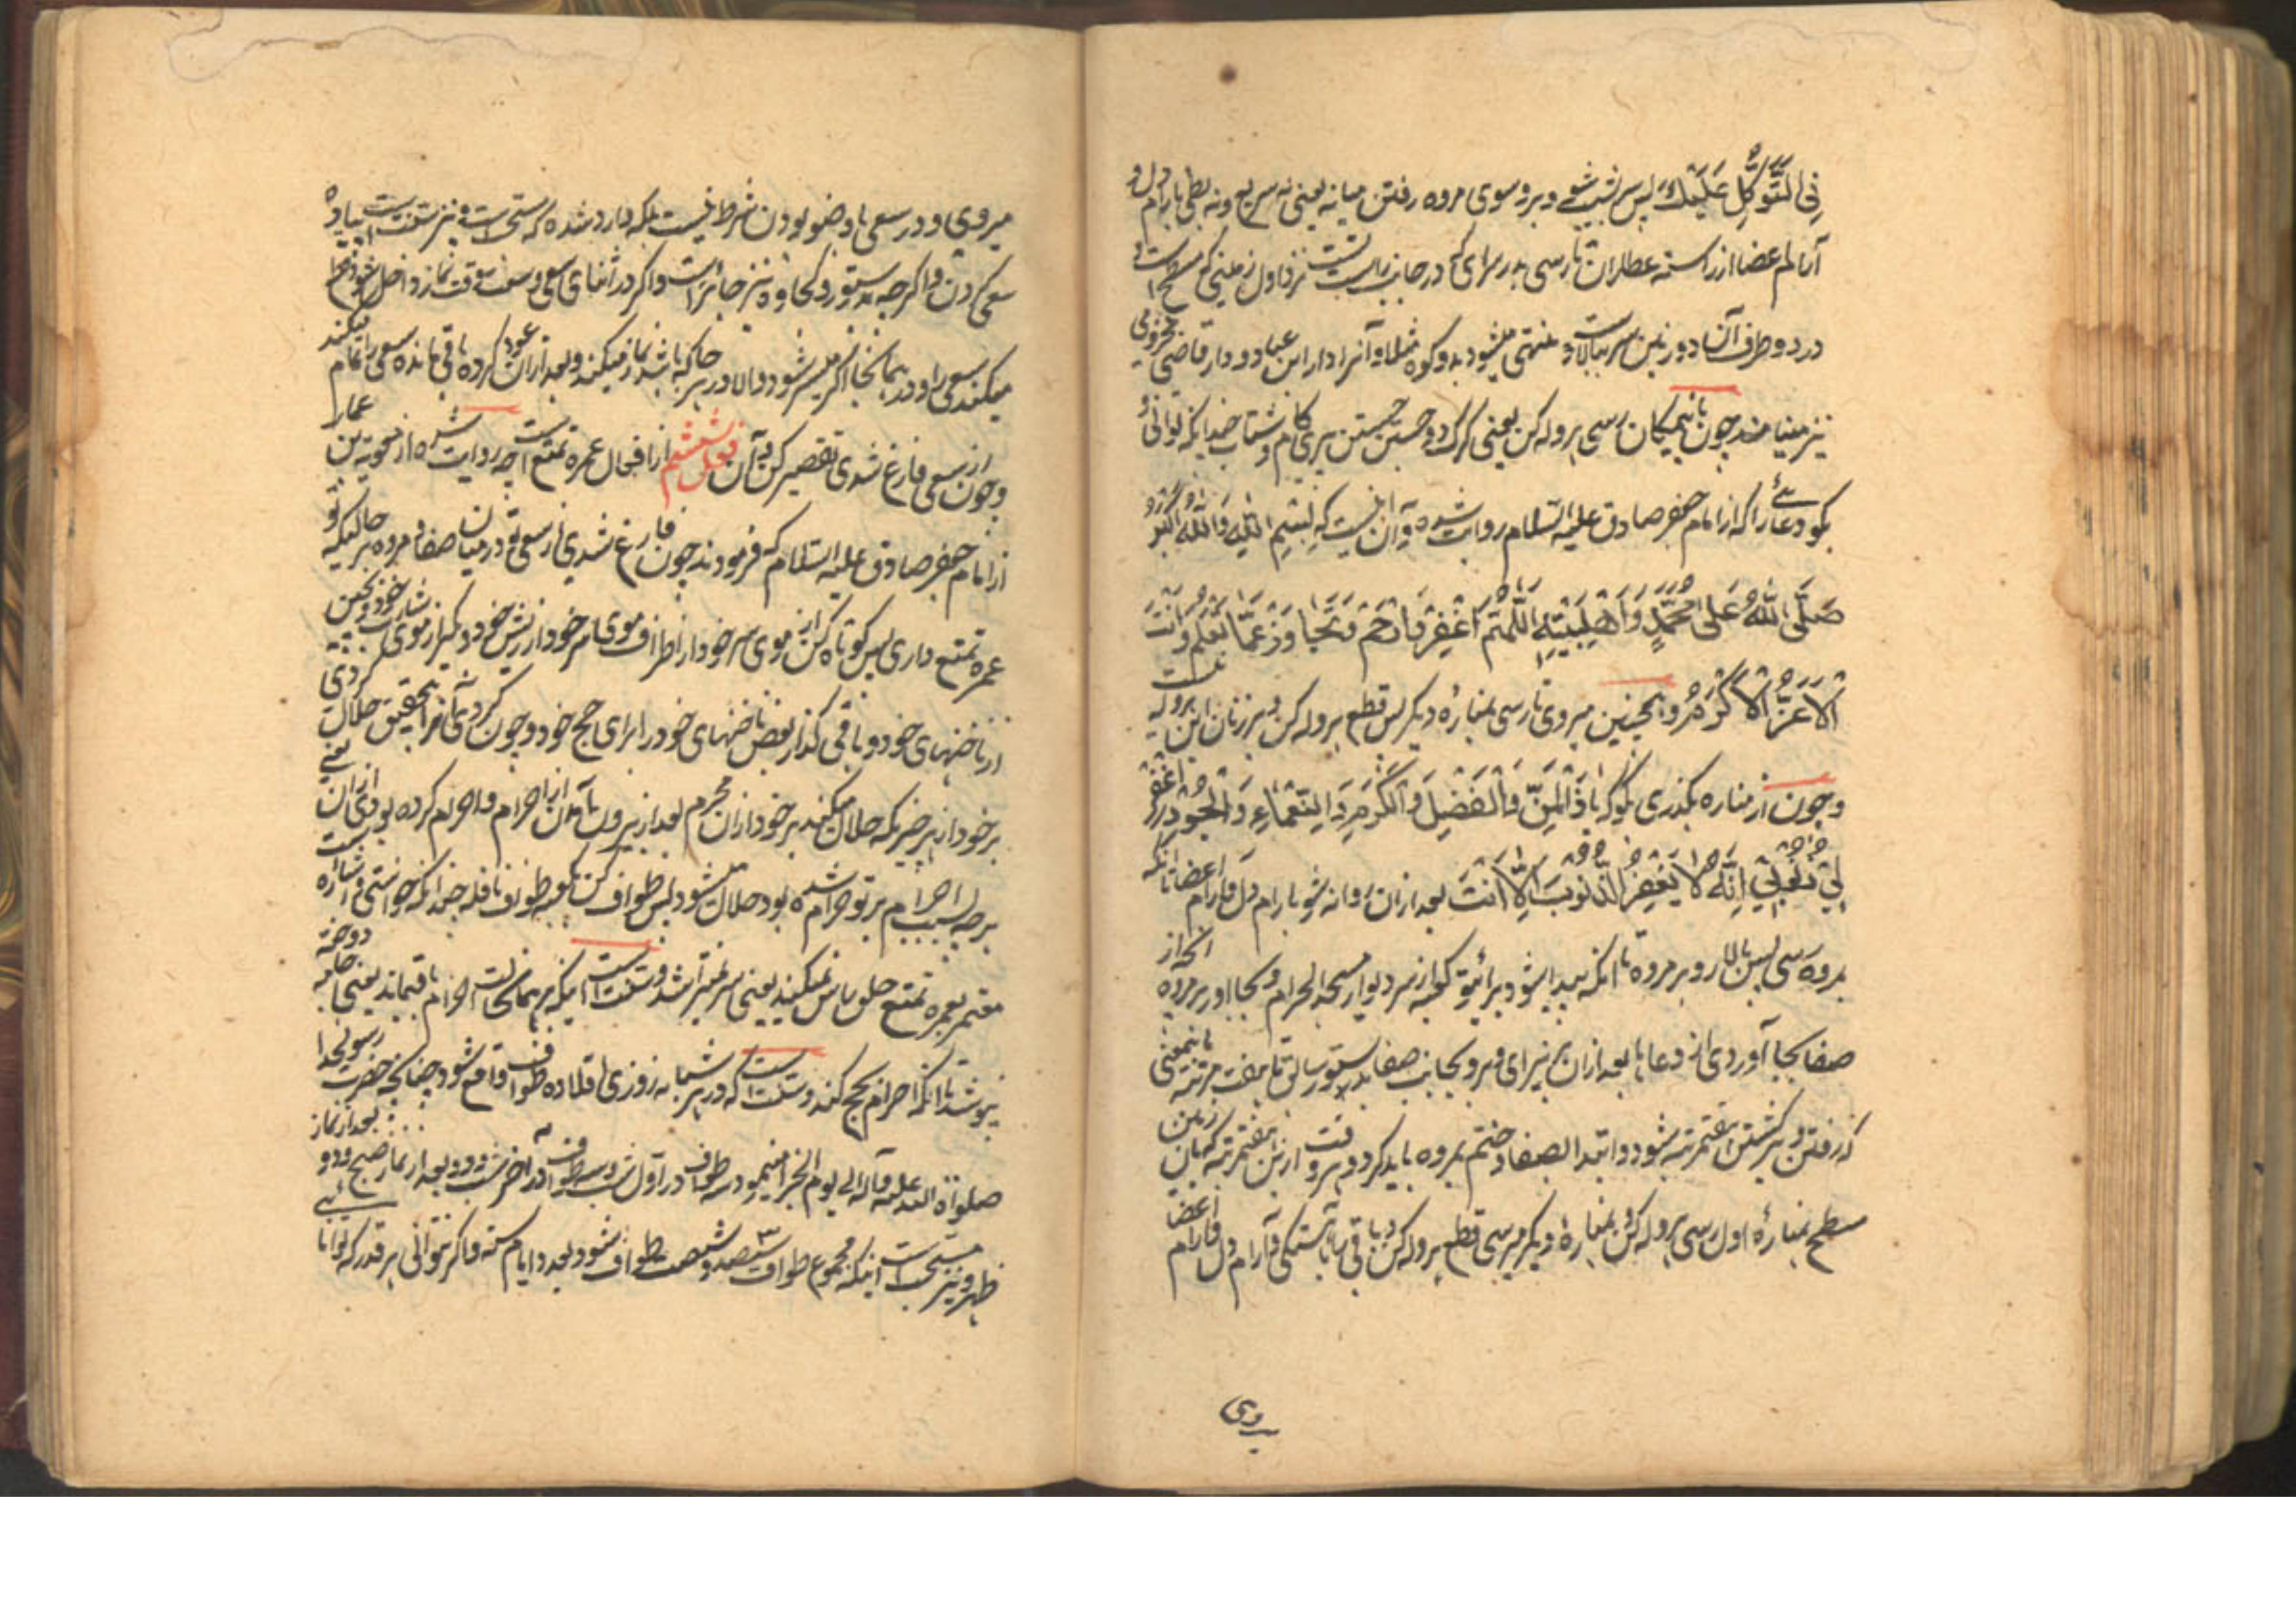 فِي التَّوَكُّلِ عَلَيْكَ پس نشیب شو و برو سوی مروه رفتن میانه یعنی نه سریع و نه بطی بارام دل و
آرام اعضا از راسته عطاران تا رسی بدر سرای که در جانب راست تست نزد اول زمینی که مسطح است و
در دو طرف آن دو زمین سربالاست و منتهی میشود بدو کوه و آنرا دار ابن عباد و دار قاضی مخزومی
نیز مینامند چون بانمکان رسی هروله کن یعنی گرگ دو و جستن جستن بریز کام و شتاب چندانکه توانی و
بگو دعائی را که از امام جعفر صادق علیه السلام روایت شده و آن اینست که بِسْمِ اللهِ وَاللهُ اَكْبَرُ وَ
صَلَّى اللهُ عَلى مُحَمَّدٍ وَاَهْلِبَيْتِهِ اَللّهُمَّ اغْفِرْ وَارْحَمْ وَتَجاوَزْ عَمّا تَعْلَمُ وَاَنْتَ
الْاَعَزُّ الْاَكْرَمُ و همچنین میروی تا رسی بمناره دیگر پس قطع هروله کن و بر زنان این هروله نیست
و چون از مناره بگذری بگو که يا ذَا الْمَنِّ وَالْفَضْلِ وَالْكَرَمِ وَالنَّعْماءِ وَالْجُودِ اغْفِرْ
لِي ذُنُوبِي اِنَّهُ لا يَغْفِرُ الذُّنُوبَ اِلّا اَنْتَ بعد از ان روانه شو بارام دل و آرام اعضا تا انکه
بمروه رسی پس بالا رو بر مروه تا انکه پیدا شود برای تو کعبه از سر دیوار مسجد الحرام و بجا اور بر مروه انچه از
صفا بجا آوردی از دعاها بعد از ان بزیر ای و برو بجانب صفا بدستور سابق تا هفت مرتبه باینمعنی
که رفتن و برگشتن هفتمرتبه شود و ابتدا بصفا و ختم بمروه باید کرد و هر وقت ازین هفتمرتبه که بان زمین
مسطح بمناره اول رسی هروله کن و بمناره دیگر میرسی قطع هروله کن و باقی باهستگی و آرام دل و آرام اعضا
میروی
میروی و در سعی با وضو بودن شرط نیست بلکه وارد شده که مستحبست و نیز سنت است پیاده
سعی کردن و اگرچه بستور و کجاوه نیز جایز است و اگر در اثنای سعی وقت نماز داخل شود قطع
میکند سعی را و در همانجا اگر میسر شود و الا در هر جا که باشد نماز میکند و بعد از ان عود کرده باقی مانده سعی را تمام میکند
و چون از سعی فارغ شدی تقصیر کن و آن فعل ششم از افعال عمره تمتع است چه روایت شده از معویه بن عمار
از امام جعفر صادق علیه السلام که فرمودند چون فارغ شدی از سعی در میان صفا و مروه در حالیکه تو
عمره تمتع داری پس کوتاه کن از موی سر خود از اطراف موی سر خود و از ریش خود و بگیر از موی شارب خود و بچین
از ناخنهای خود و باقی گذار بعض ناخنهای خود را برای حج خود و چون کردی آنرا بتحقیق حلال کردی
بر خود از هر چیزیکه حلال میکند بر خود از ان محرم بعد از بیرون آمدن از احرام و احرام کرده بودی از ان یعنی
هرچه بسبب احرام بر تو حرام شده بود حلال میشود پس طواف کن بکعبه طواف نافله چندانکه خواستی و اشاره است
معتمر بعمره تمتع حلق راس نمیکند یعنی سر نمیتراشد و سنت است اینکه بر همان حالت احرام باقیماند یعنی جامه دوخته
نپوشد تا انکه احرام بحج کند و سنت است که در هر شبانه روزی اقلا ده طواف واقع شود چنانکه حضرت رسولخدا
صلوات الله علیه و آله الی یوم الجزا مینمود سه طواف در اول شب و سه طواف در آخر شب و دو بعد از نماز صبح و دو بعد از نماز
ظهر و نیز مستحب است اینکه مجموع طوافات سیصد و شصت طواف شود بعدد ایام سنه و اگر نتوانی هر قدر که توانا